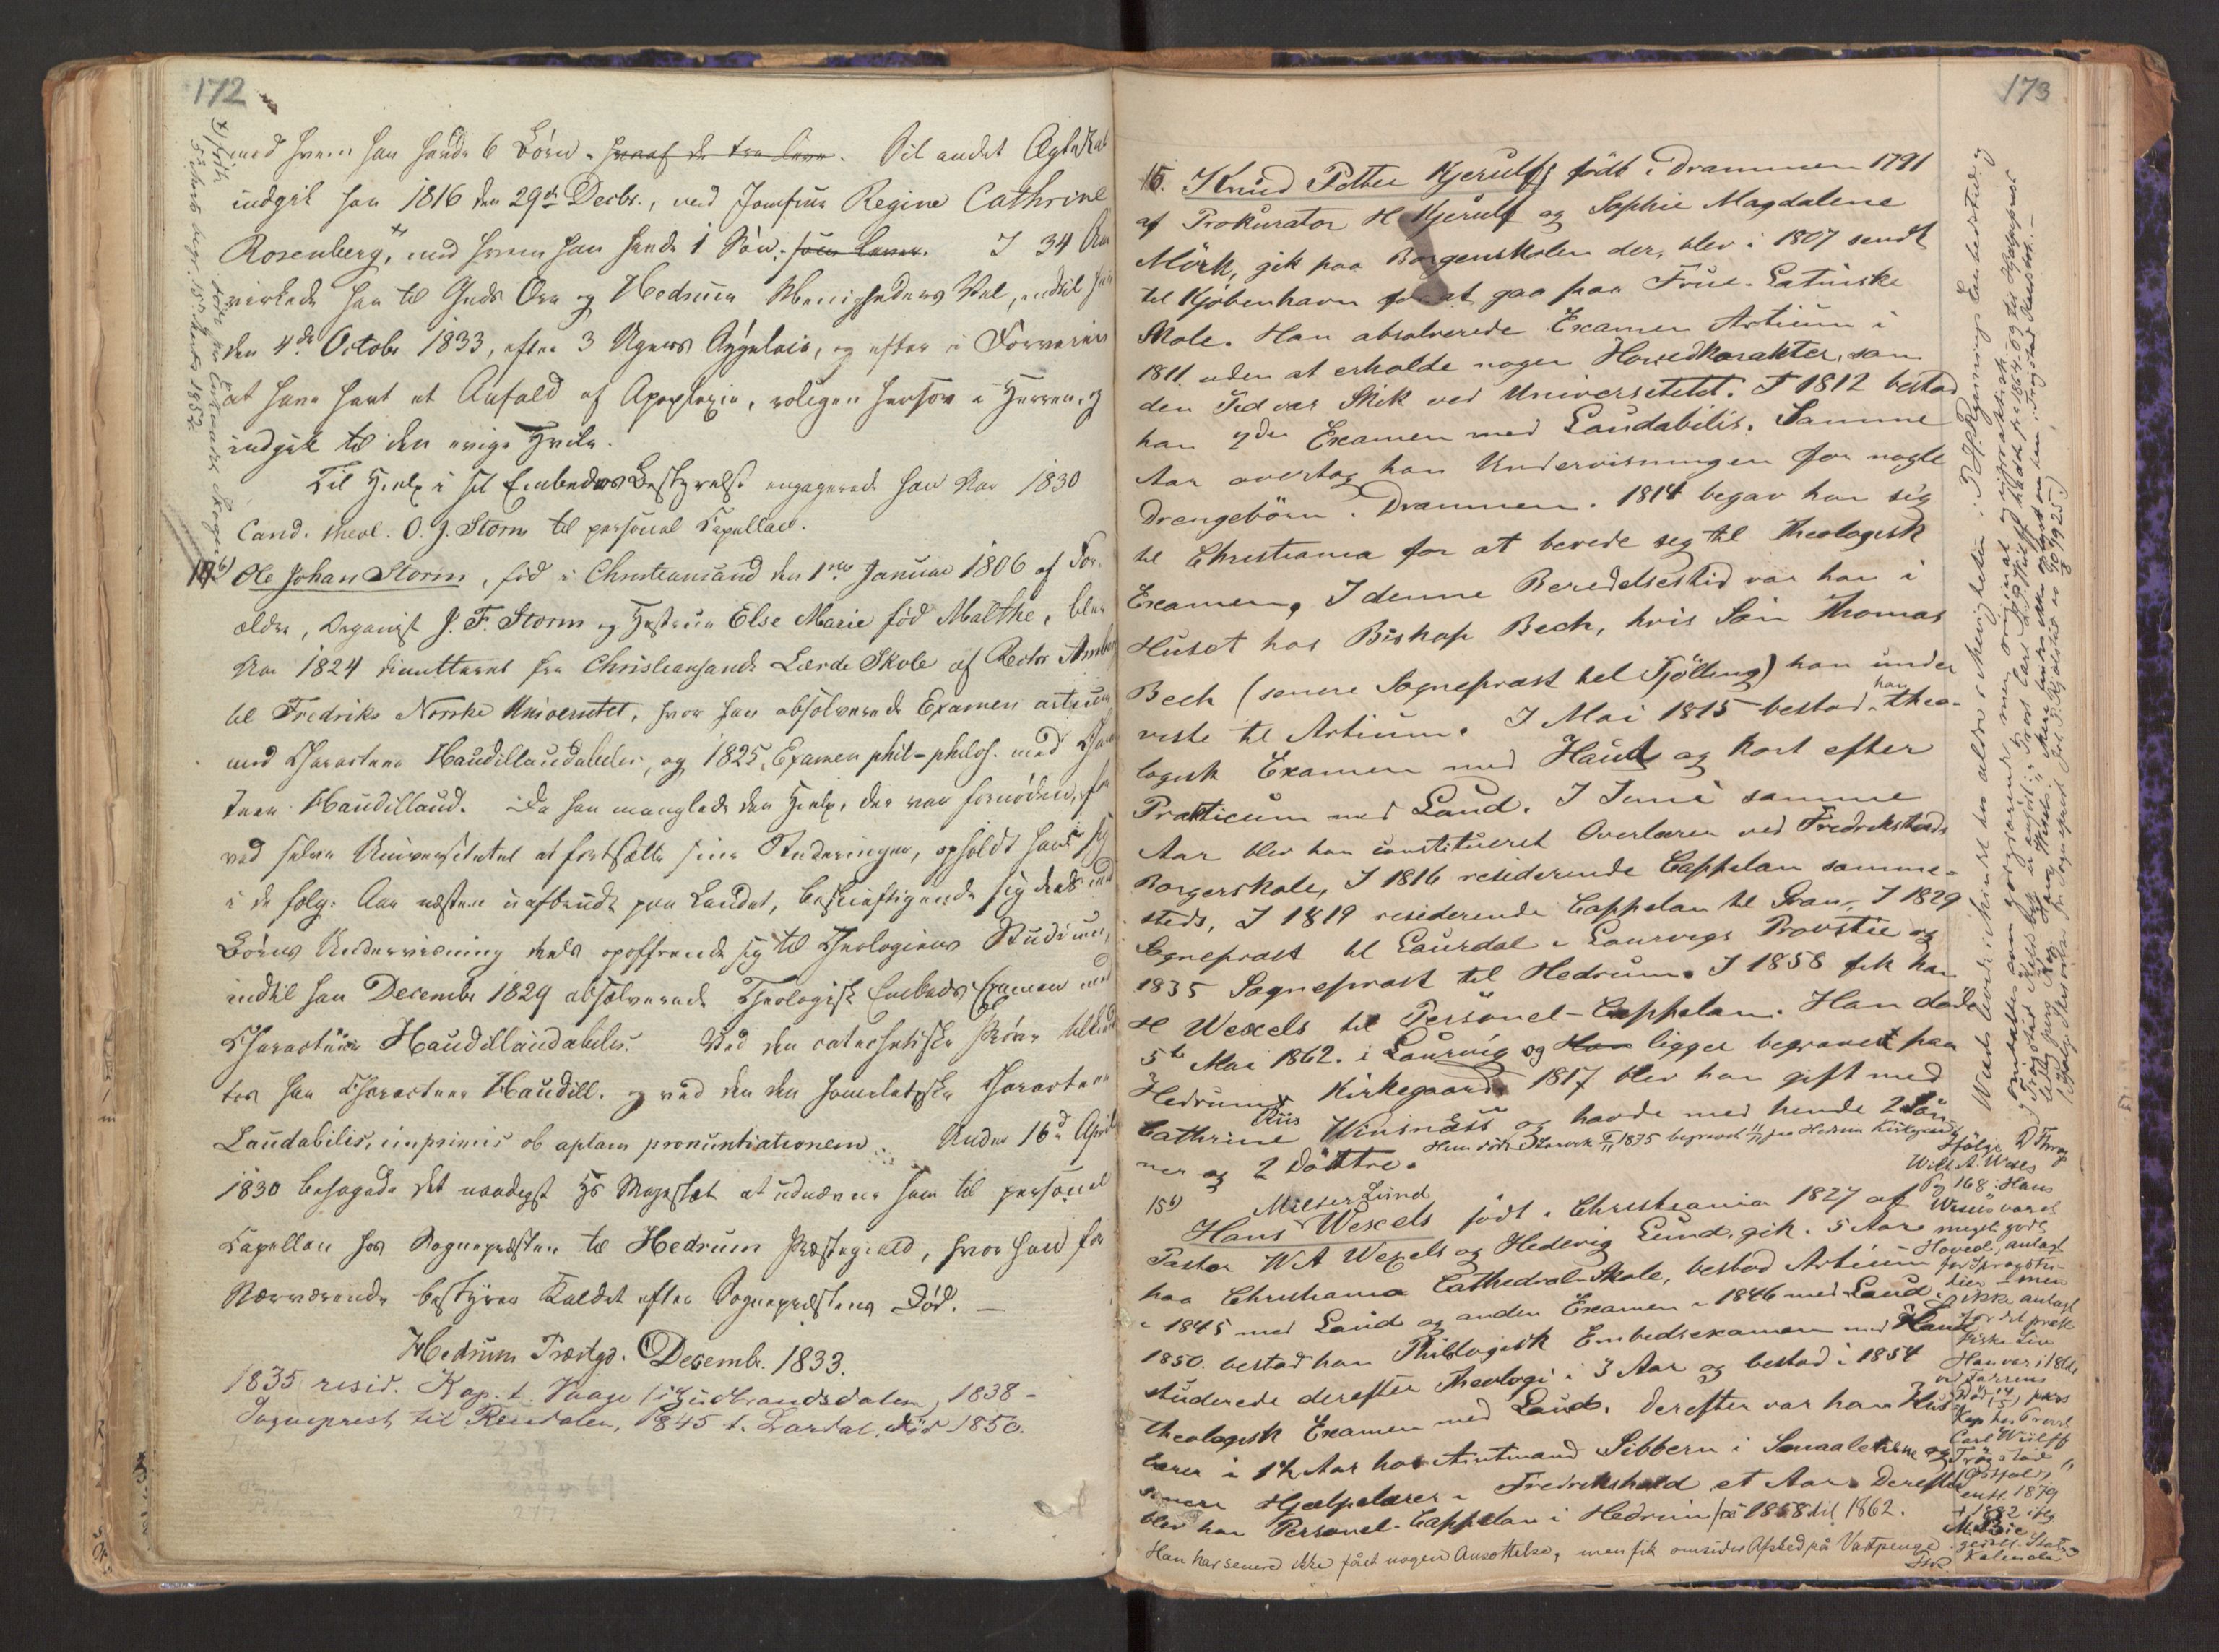 172
med hvem han havde 6 Børn - hvoraf de tre leve. Til andet Ægteskab
indgik han 1816 den 29de Decbr., med Jomfrue Regine Cathrine
Rosenberg, med hvem han havde 1 Søn, som lever. I 34 Aar
virkede han til Guds Ære og Hedrum Menigheders Vel, indtil han
den 4de Octobr 1833, efter 3 Ugers Sygeleie, og efter i Forveien
at have havt et Anfald af Apoplexie, roligen hensov i Herren, og
indgik til den evige Hvile.
Til Hielp i sit Embedes Bestyrelse engagerede han Aar 1830
Cand. theol. O. J. Storm til personel Capellan.
Ole Johan Storm, fød i Christiansand den 1ste Januar 1806 af For-
ældre, Organist J. F. Storm og Hustrue Else Marie fød Malthe, blev
Aar 1824 dimitteret fra Christiansands Lærde Skole af Rector
til Fredriks Norske Universitet, hvor han absolverede Examen artium
med Characteer Haudillaudabilis, og 1825, Examen phil-philos. med Cha-
racteer Haudillaud. Da han manglede den Hielp, der var fornøden, for
ved selve Universitetet at fortsætte sine Studeringer, opholdt han sig
i de følg. Aar næsten uafbrudt paa Landet, beskiæftigende sig deels med
Børns Underviisning deels opoffrende sig til Theologiens Studium,
indtil han Decembr 1829 absolverede Theologisk Embeds Examen med
Characteer Haudillaudabilis. Ved den catechetiske Prøve tilkiend-
tes han Characteer Haudill. og ved den homiletiske Characteer
Laudabilis, imprimis ob aptam pronuntiationem. Under 16de April
1830 behagede det naadigst Hs Majestæt at udnævne ham til personel
Capellan hos Sognepræsten til Hedrum Præstegield, hvor han for
Nærværende bestyrer Kaldet efter Sognepræstens Død. —
Hedrum Præstgd. Decembr. 1833.
1835 resid. Kap. t. Vaage i Gudbrandsdalen, 1838 -
Sogneprest til Rendalen, 1845 t. Lardal, død 1850.
173
15. Knud Petter Kjerulf, født i Drammen 1791
af Prokurator H Kjerulf og Sophie Magdalene
Mörk, gik paa Borgerskolen der, blev i 1807 sendt
til Kjöbenhavn for at gaa paa Frue-Latinske
Skole. Han absolverede Examen Artium i
1811. uden at erholde nogen Hovedkarakter, som
den Tid var Skik ved Universitetet. I 1812 bestod
han 2den Examen med Laudabilis. Samme
Aar overtog han Undervisningen for nogle
Drengebörn i Drammen. 1814 begav han sig
til Christiania for at berede sig til Theologisk
Examen. I denne Beredelsestid var han i
Huset hos Biskop Bech, hvis Sön Thomas
Bech (senere Sognepræst til Tjölling) han under
viste til Artium. I Mai 1815 bestod han theo-
logisk Examen med Haud og kort efter
Prakticum med Laud. I Juni samme
Aar blev han constitueret Overlærer ved Fredrikstads
Borgerskole, I 1816 residerende Cappelan samme-
steds, I 1819 residerende Cappelan til Gran, I 1829
Sognepræst til Laurdal i Laurvigs Provstie og
1835 Sognepræst til Hedrum. I 1858 fik han
H Wexels til Personel-Cappelan. Han döde
5te Mai 1862. i Laurvig og Han ligger begravet paa
Hedrums Kirkegaard. 1817 blev han gift med
Cathrine Riis Winsnæss og havde med hende 2 Sön-
ner og 2 Döttre. Hun döde i Larvik 1875 begravet paa Hedrum Kirkegaard
15b) Milter Lund
Hans Wexels födt i Christiania 1827 af
Pastor W A Wexels og Hedevig Lund, gik i 5 Aar
paa Christiania Cathedral-Skole, bestod Artium
i 1845 med Laud og anden Examen i 1846 med Laud.
1850. bestod han Philologisk Embedsexamen med Haud
studerede derefter Theologi i 3 Aar og bestod i 1854
theologisk Examen med Laud. Derefter var han Hus
lærer i 1½ Aar hos Amtmand Sibbern i Smaalenene og
senere Hjælpelærer i Fredrikshald et Aar. Derefter
blev han Personel-Cappelan i Hedrum fra 1858 til 1862.
Han har senere ikke fået nogen Ansættelse, men fik omsider Afsked på Vartpenge.
Pg 168: Hans
Wexels var et
meget godt
Hoved, anlagt
for Sprogstu-
dier - men
ikke anlagt
for det prak-
tiske Liv
Carl Wülff
Trögstad
(Östfold)